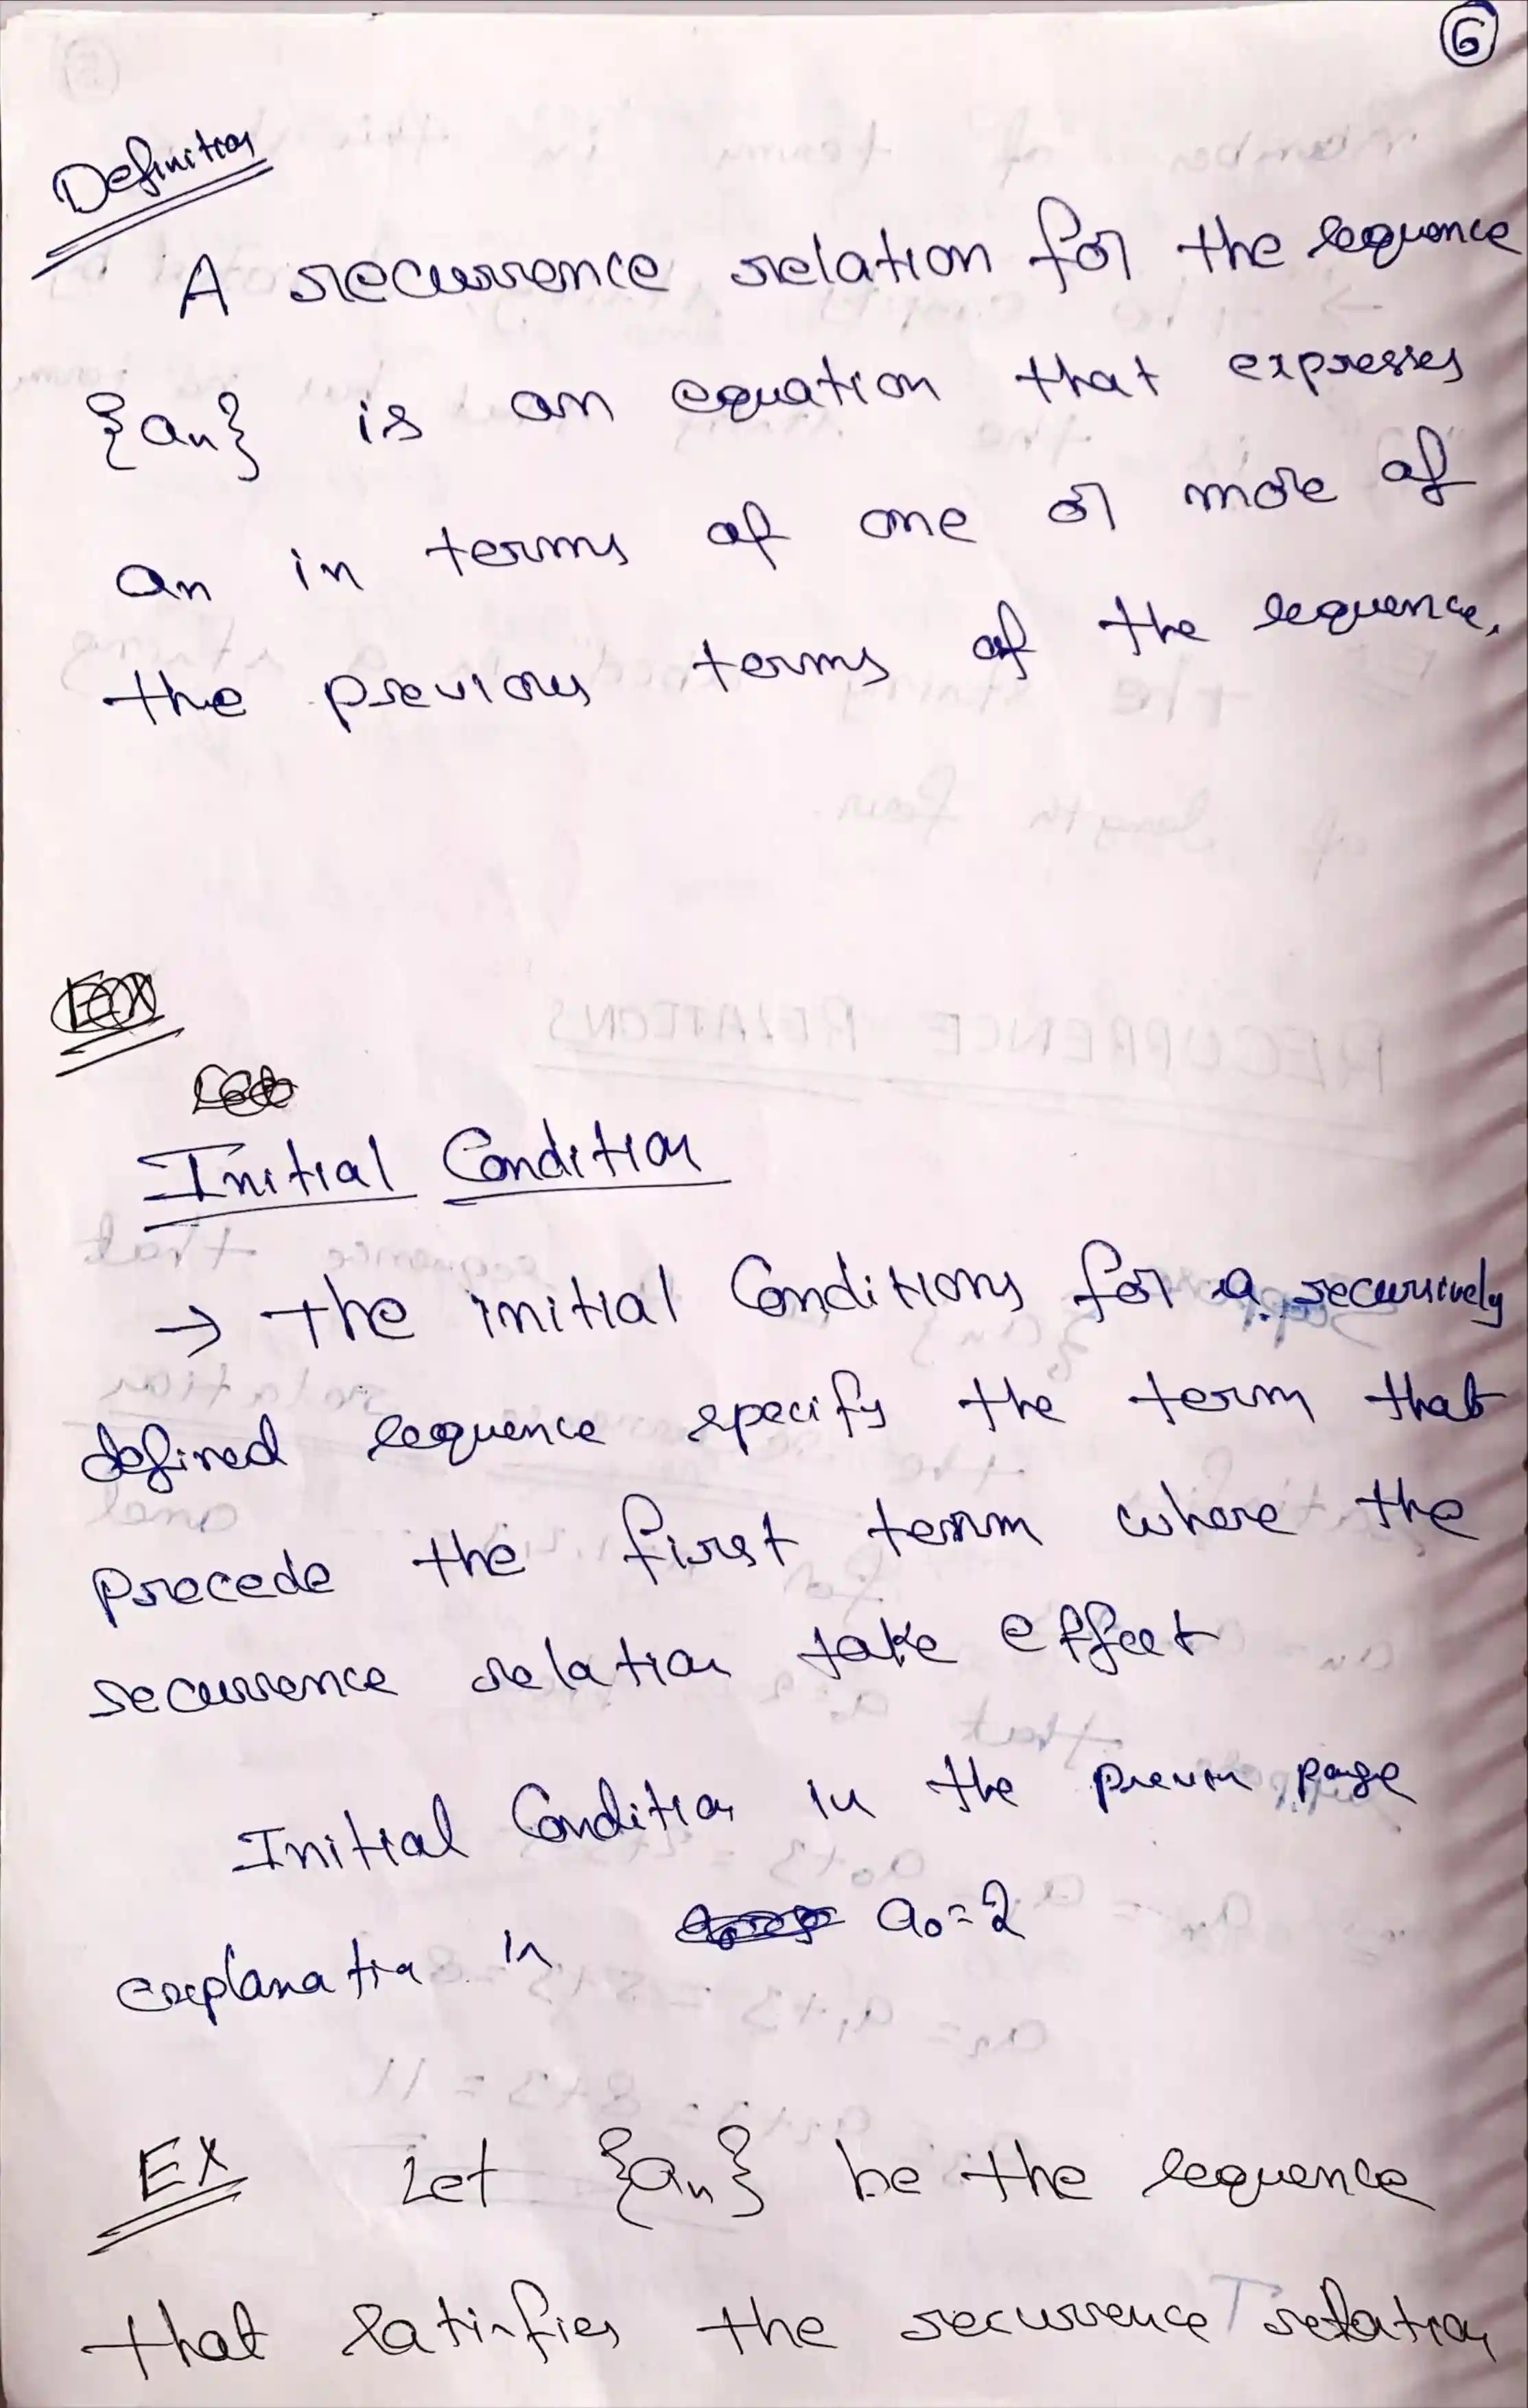 6
Definition
A recurrence relation for the sequence
{an} is an equation that expresses
an in terms of one or more of
the previous terms of the sequence.
Initial Condition
→ The initial Conditions for a recursively
defined sequence specify the term that
precede the first term where the
recurrence relation take effect
Initial Condition in the page
explanation in a0=2
EX Let {an} be the sequence
that satisfies the recurrence relation